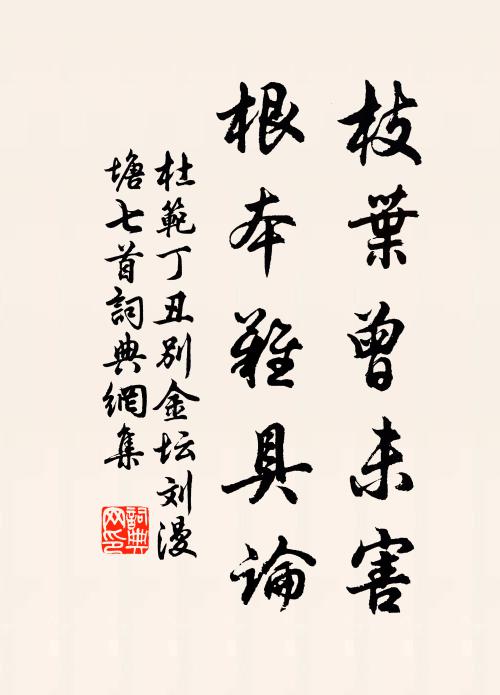 枝葉曾未害
根本難具論
杜範丁丑別金坛刘漫
塘七首詞典網集
詞典
网印